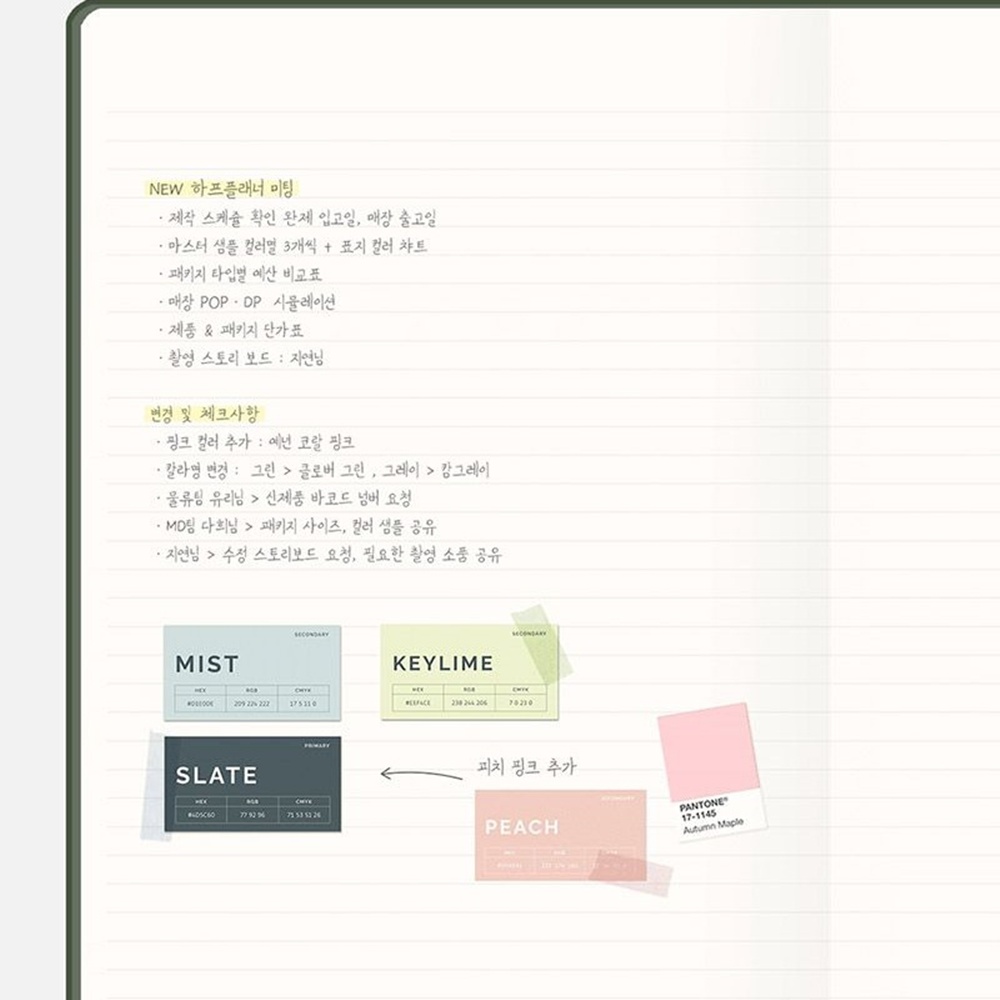 NEW 하프플래너 미팅
· 제작 스케쥴 확인 완제 입고일, 매장 출고일
· 마스터 샘플 컬러별 3개씩 + 표지 컬러 챠트
· 패키지 타입별 예산 비교표
· 매장 POP · DP 시뮬레이션
· 제품 & 패키지 단가표
· 촬영 스토리 보드 : 지연님
변경 및 체크사항
· 핑크 컬러 추가 : 예년 코랄 핑크
· 칼라명 변경 : 그린 > 클로버 그린 , 그레이 > 캄그레이
· 물류팀 유리님 > 신제품 바코드 넘버 요청
· MD팀 다희님 > 패키지 사이즈, 컬러 샘플 공유
· 지연님 > 수정 스토리보드 요청, 필요한 촬영 소품 공유
SECONDARY
MIST
HEX RGB CMYK
#D1E0DE 209 224 222 17 5 11 0
SECONDARY
KEYLIME
HEX RGB CMYK
#EEF4CE 238 244 206 7 0 23 0
PRIMARY
SLATE
HEX RGB CMYK
#4D5C60 77 92 96 71 53 51 26
피치 핑크 추가
SECONDARY
PEACH
HEX RGB
PANTONE®
17-1145
Autumn Maple